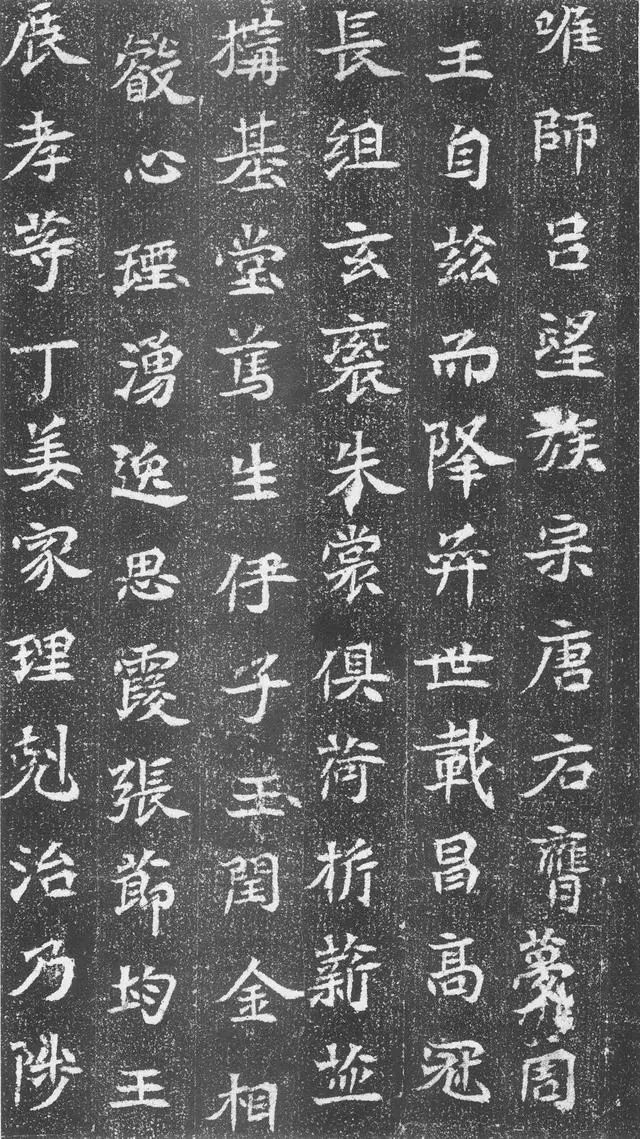 唯師呂望族宗唐右膺夢周
王自茲而降弈世載昌高冠
長組玄袞朱裳俱荷析薪並
搆基堂篤生伊子玉閏金相
叡心湧逸思霞張節均王
展孝等丁姜家理剋治乃陟